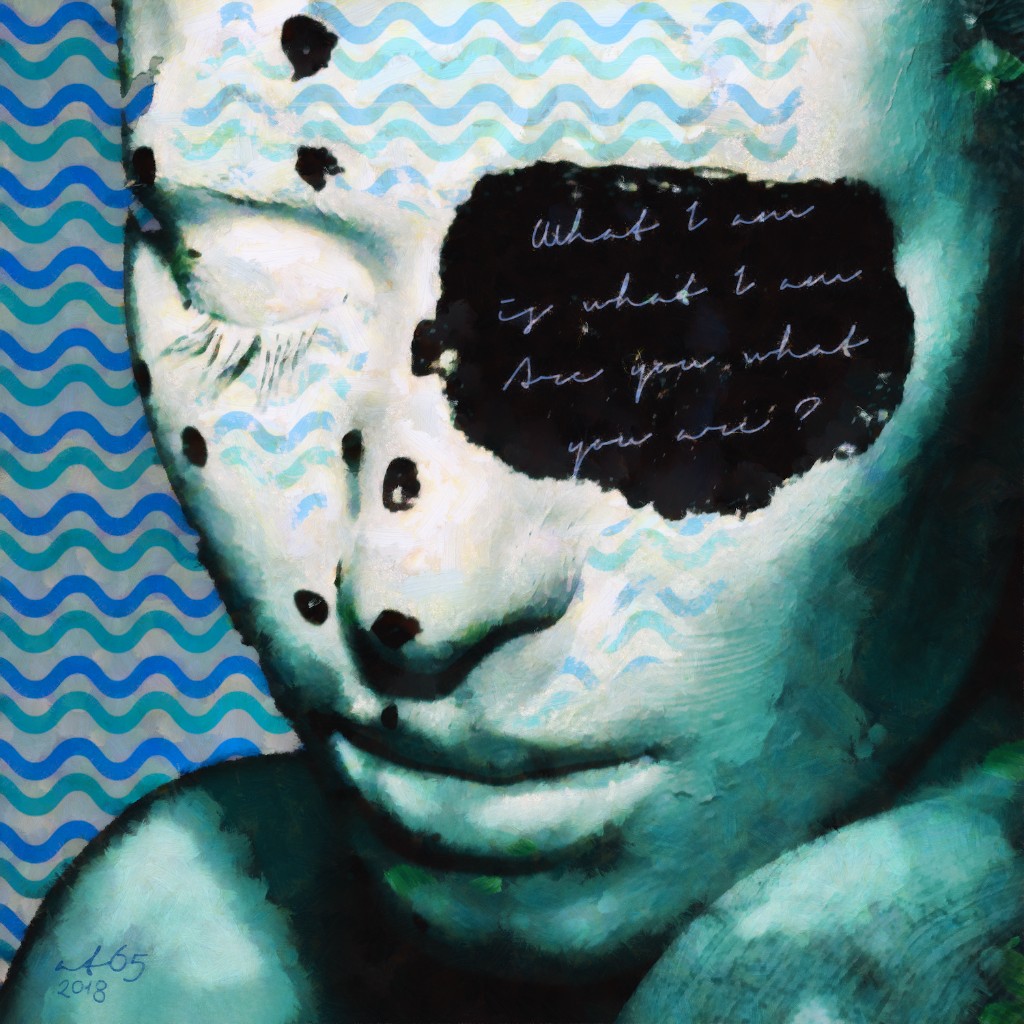 What I am
is what I am
Are you what
you are?
at65
2018